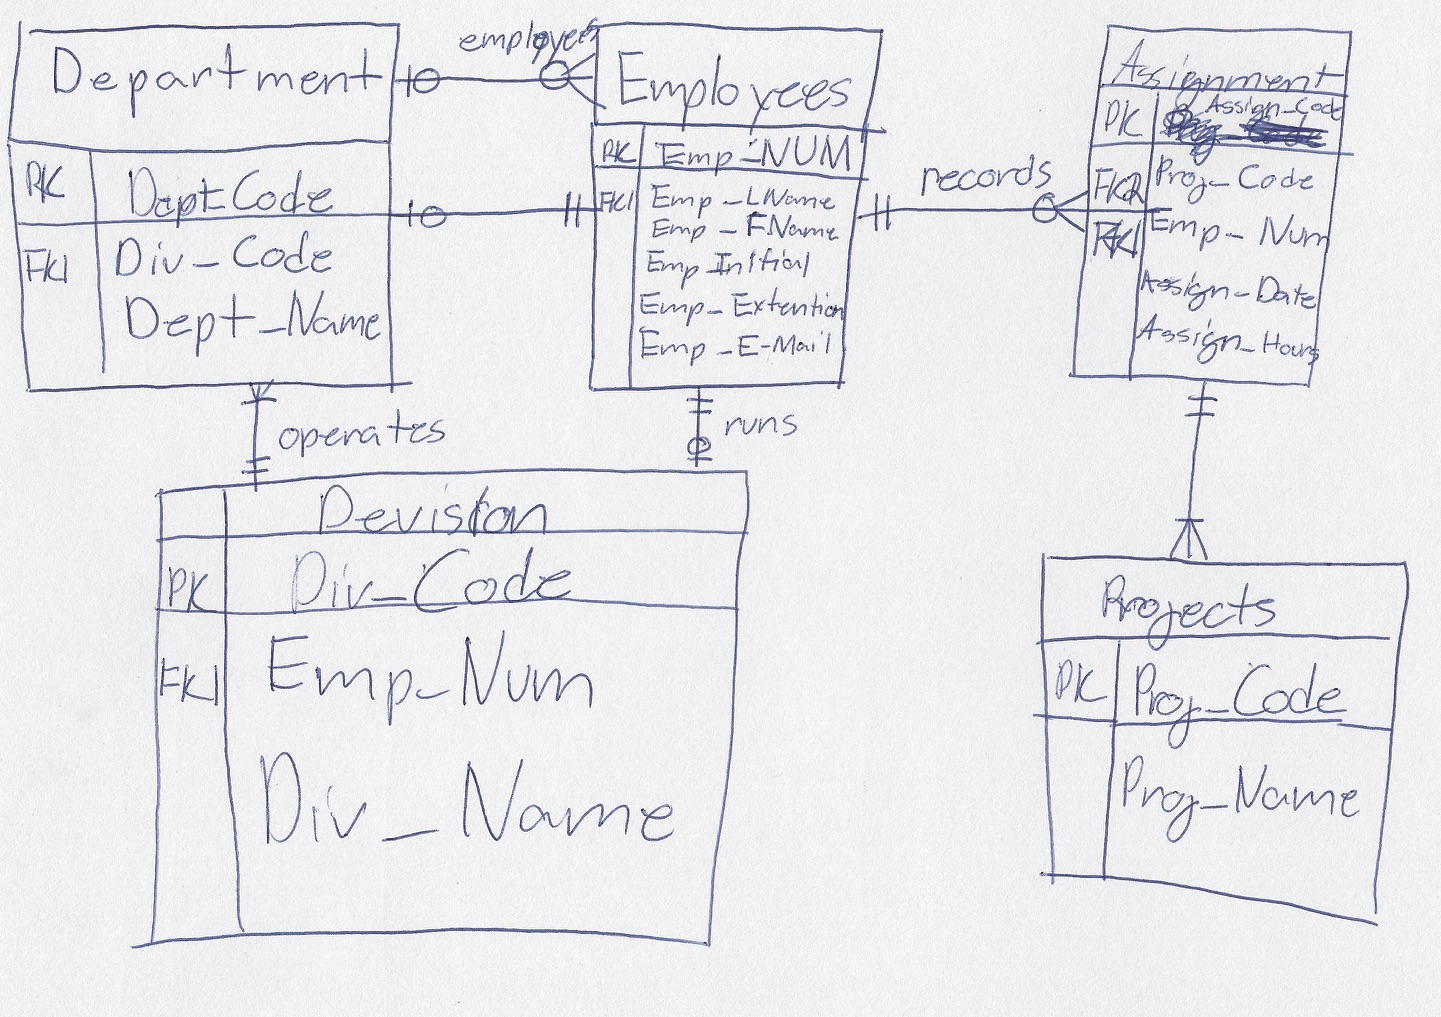 Department
PK Dept_Code
FK1 Div_Code
Dept_Name
employees
Employees
PK Emp_NUM
FK1 Emp_LName
Emp_FName
Emp_Initial
Emp_Extention
Emp_E-Mail
records
Assignment
PK Assign_Code
FK2 Proj_Code
FK1 Emp_Num
Assign_Date
Assign_Hours
operates
runs
Devision
PK Div_Code
FK1 Emp_Num
Div_Name
Projects
PK Proj_Code
Proj_Name